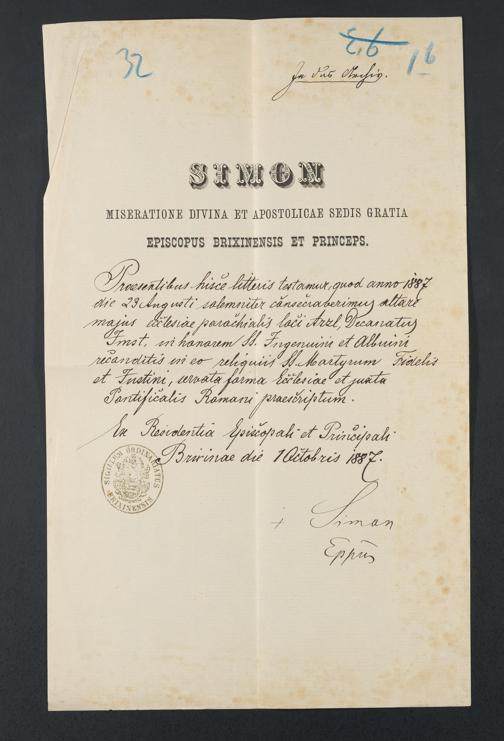 32
E,9
16
In das Archiv.
SIMON
MISERATIONE DIVINA ET APOSTOLICAE SEDIS GRATIA
EPISCOPUS BRIXINENSIS ET PRINCEPS.
Praesentibus hisce litteris testamur, quod anno 1887
die 29 Augusti solemniter consecraberimus altare
majus ecclesiae parochialis loci Arzl, Decanatus
Imst, in honorem SS. Ingenuini et Albuini
reconditis in eo reliquiis SS. Martyrum Fidelis
et Justini, servata forma Ecclesiae et juxta
Pontificalis Romani praescriptum.
Ex Residentia Episcopali et Principali
Brixinae die 1 Octobris 1887.
SIGILLUM ORDINARIATUS BRIXINENSIS
+ Simon
Eppus